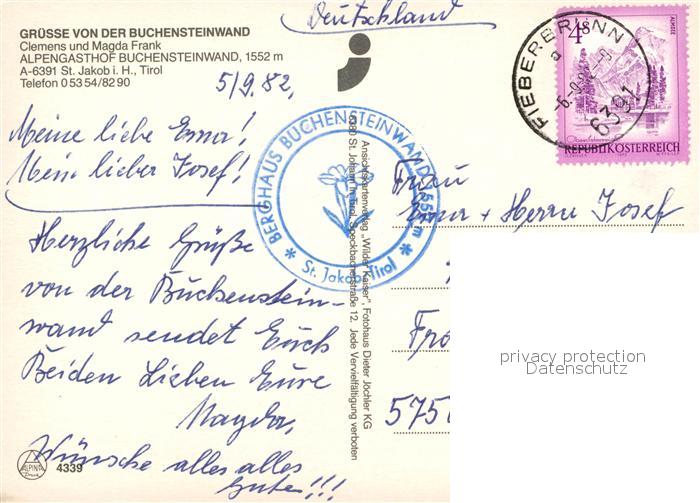 Deutschland
GRÜSSE VON DER BUCHENSTEINWAND
Clemens und Magda Frank
ALPENGASTHOF BUCHENSTEINWAND, 1552 m
A-6391 St. Jakob i. H., Tirol
Telefon 0 53 54/82 90
5/9.82,
Meine liebe Erna!
Mein lieber Josef!
Herzliche Grüße
von der Buchenstein-
wand sendet Euch
Beiden Lieben Eure
Magda,
Wünsche alles alles
Gute!!!
ALPINA
4339
BERGHAUS BUCHENSTEINWAND 1552 m
St. Jakob Tirol
Ansichtskartenverlag „Wilder Kaiser“, Fotohaus Dieter Jöchler KG
6380 St. Johann in Tirol, Speckbacherstraße 12. Jede Vervielfältigung verboten
FIEBERBRUNN
a
6391
4S
ALMSEE
REPUBLIK ÖSTERREICH
Frau
Erna + Herrn Josef
575
privacy protection
Datenschutz